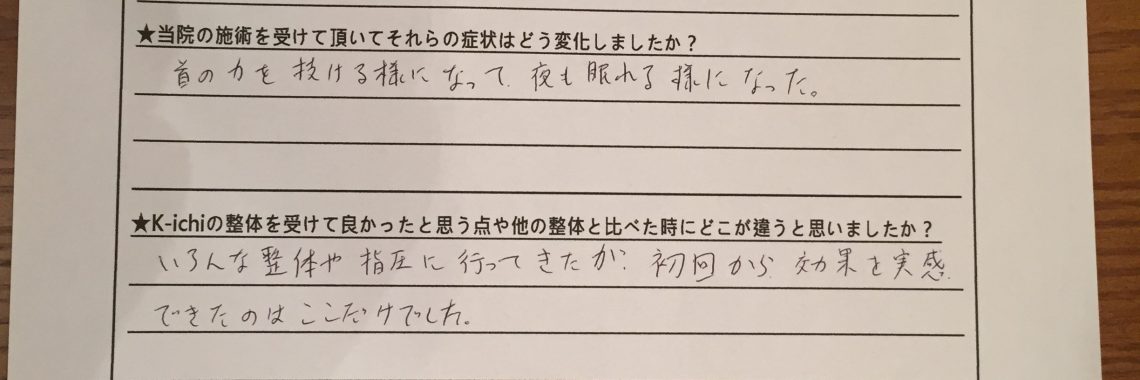 ★当院の施術を受けて頂いてそれらの症状はどう変化しましたか？
首の力を抜ける様になって、夜も眠れる様になった。
★K-ichiの整体を受けて良かったと思う点や他の整体と比べた時にどこが違うと思いましたか？
いろんな整体や指圧に行ってきたが、初回から効果を実感
できたのはここだけでした。